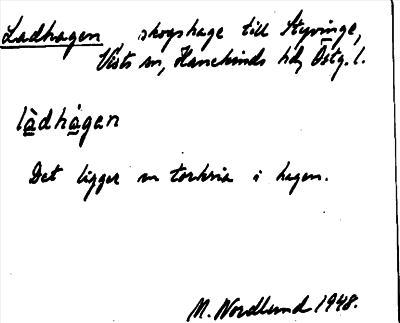 Ladhagen skogshage till Styvinge,
Vists sn, Hanekinds hd, Östg. l.
làdhágen
Det ligger en torkria i hagen.
M. Nordlund 1948.